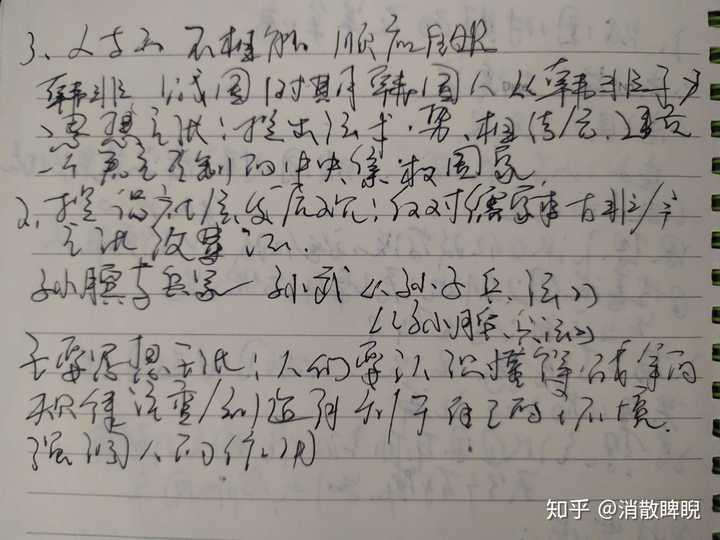 3、人与 不相 顺应自然
韩非 战国时期韩国人《韩非子》
思想主张：提出法、术、势、相结合，建立
一个君主专制的中央集权国家
2、提 社会发展观；反对儒家 古非今
主张改革
孙膑与兵家 孙武《孙子兵法》
《孙膑兵法》
主要思想主张：人们要认识懂得战争的
规律 创造 利于自己的环境
强调人的作用
知乎 @消散睥睨